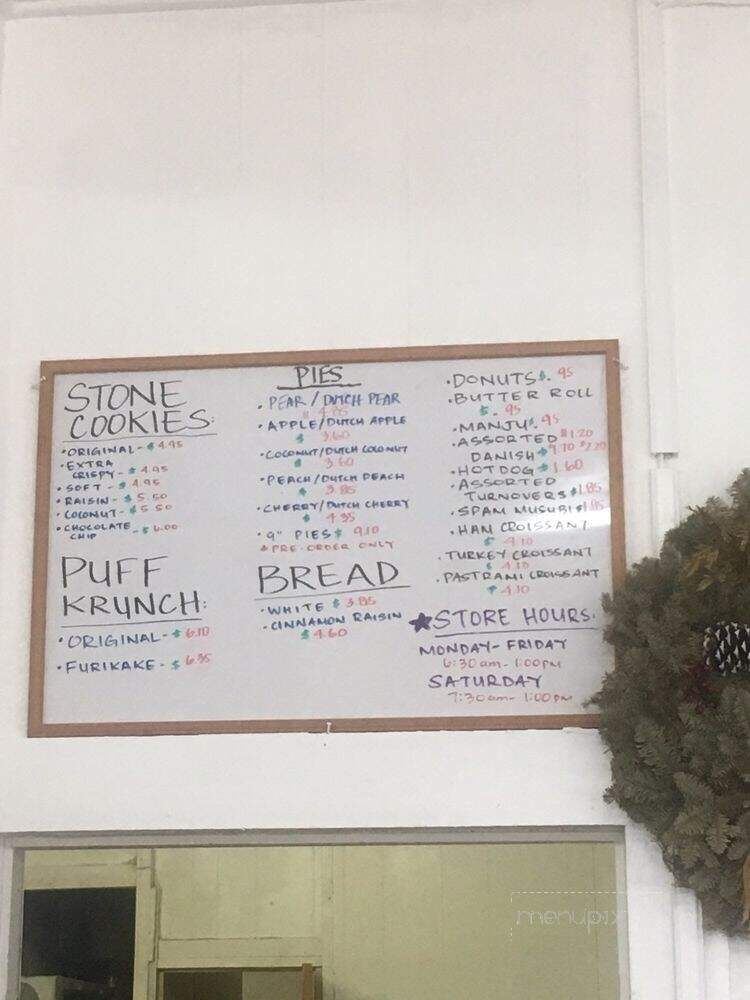 STONE
COOKIES:
• ORIGINAL - $4.95
• EXTRA
CRISPY - $4.95
• SOFT - $4.95
• RAISIN - $5.50
• COCONUT - $5.50
• CHOCOLATE
CHIP - $6.00
PUFF
KRUNCH:
• ORIGINAL - $6.10
• FURIKAKE - $6.35
PIES
• PEAR / DUTCH PEAR
$4.85
• APPLE/DUTCH APPLE
$3.60
• COCONUT/DUTCH COCONUT
$3.60
• PEACH/DUTCH PEACH
$3.85
• CHERRY/DUTCH CHERRY
$4.35
• 9" PIES $9.10
*PRE-ORDER ONLY
BREAD
• WHITE $3.85
• CINNAMON RAISIN
$4.60
• DONUTS $.95
• BUTTER ROLL
$.95
• MANJU $.95
• ASSORTED $1.20
DANISH $2.20
• HOT DOG $1.60
• ASSORTED
TURNOVERS $1.85
• SPAM MUSUBI $1.85
• HAM CROISSANT
$4.10
• TURKEY CROISSANT
$4.10
• PASTRAMI CROISSANT
$4.10
★STORE HOURS:
MONDAY - FRIDAY
6:30am - 1:00pm
SATURDAY
7:30am - 1:00pm
menupix